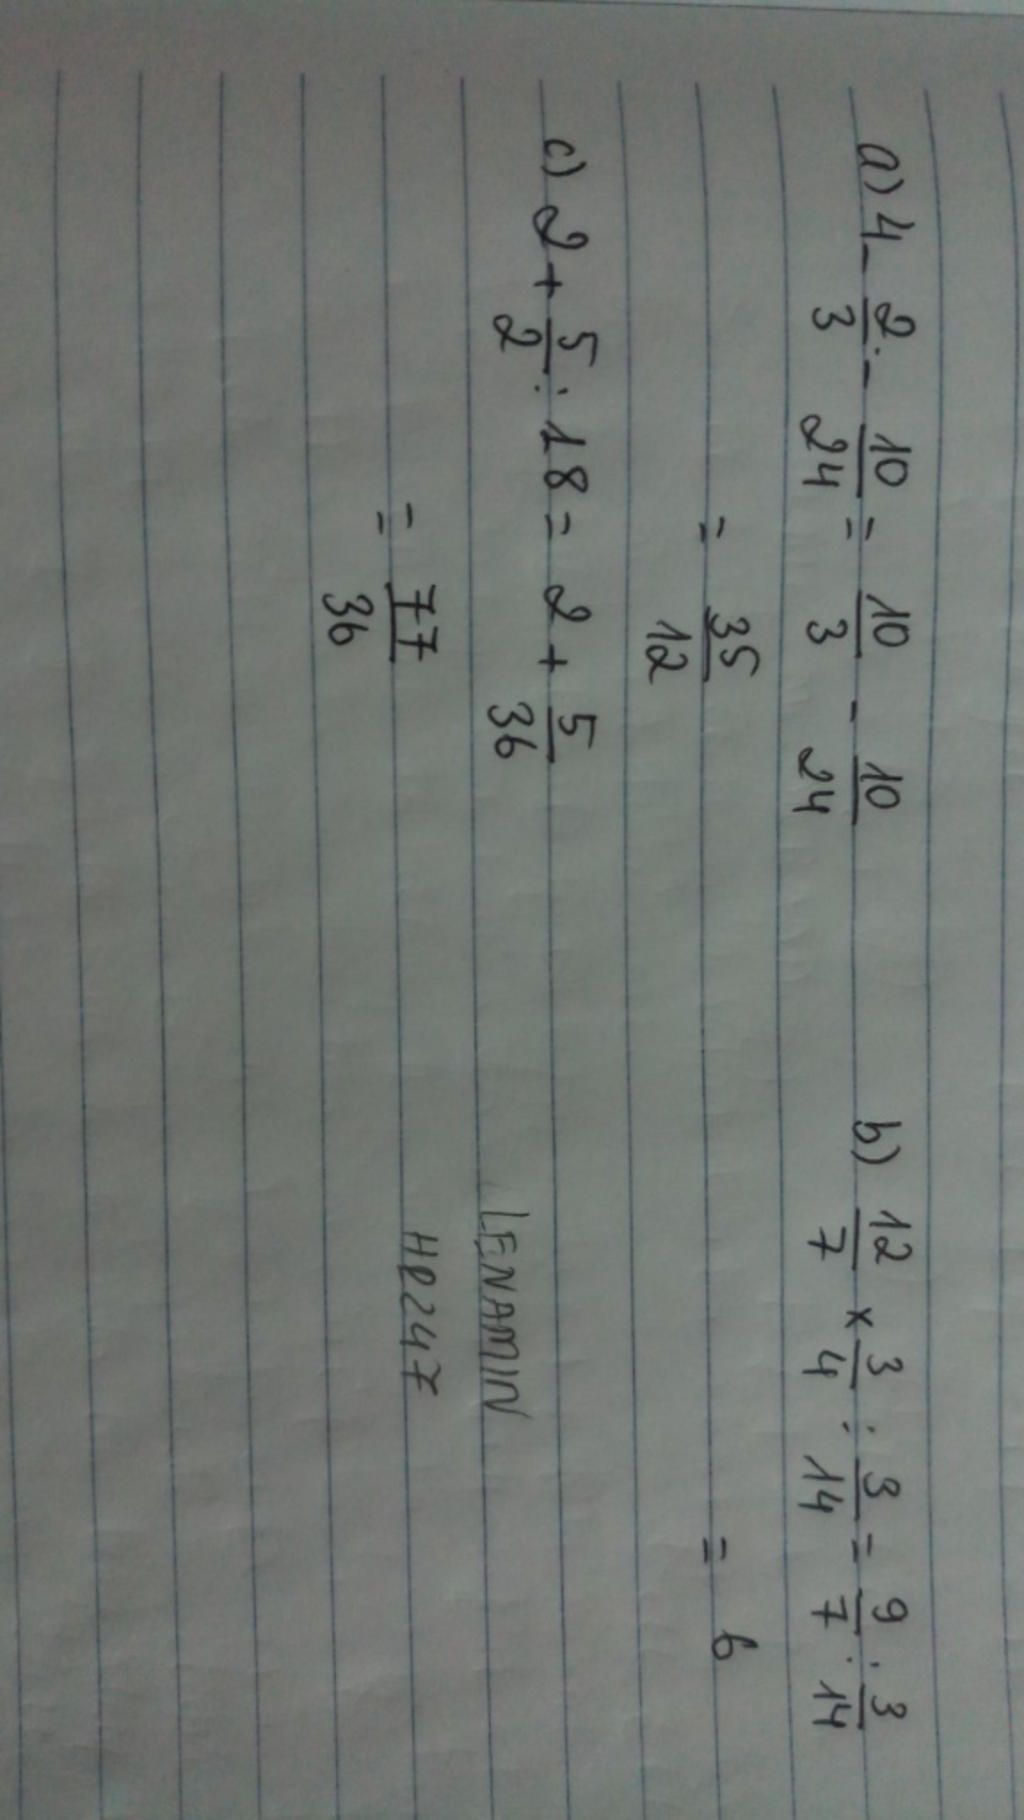 a) 4 - 2/3 - 10/24 = 10/3 - 10/24
= 35/12
b) 12/7 × 3/4 : 3/14 = 9/7 : 3/14
= 6
c) 2 + 5/2 : 18 = 2 + 5/36
= 77/36
LENAMIN
HR247